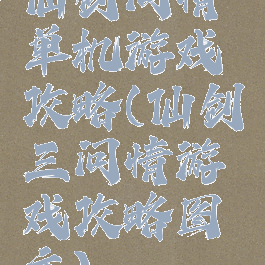 仙剑问情
单机游戏
攻略(仙剑
三问情游
戏攻略图